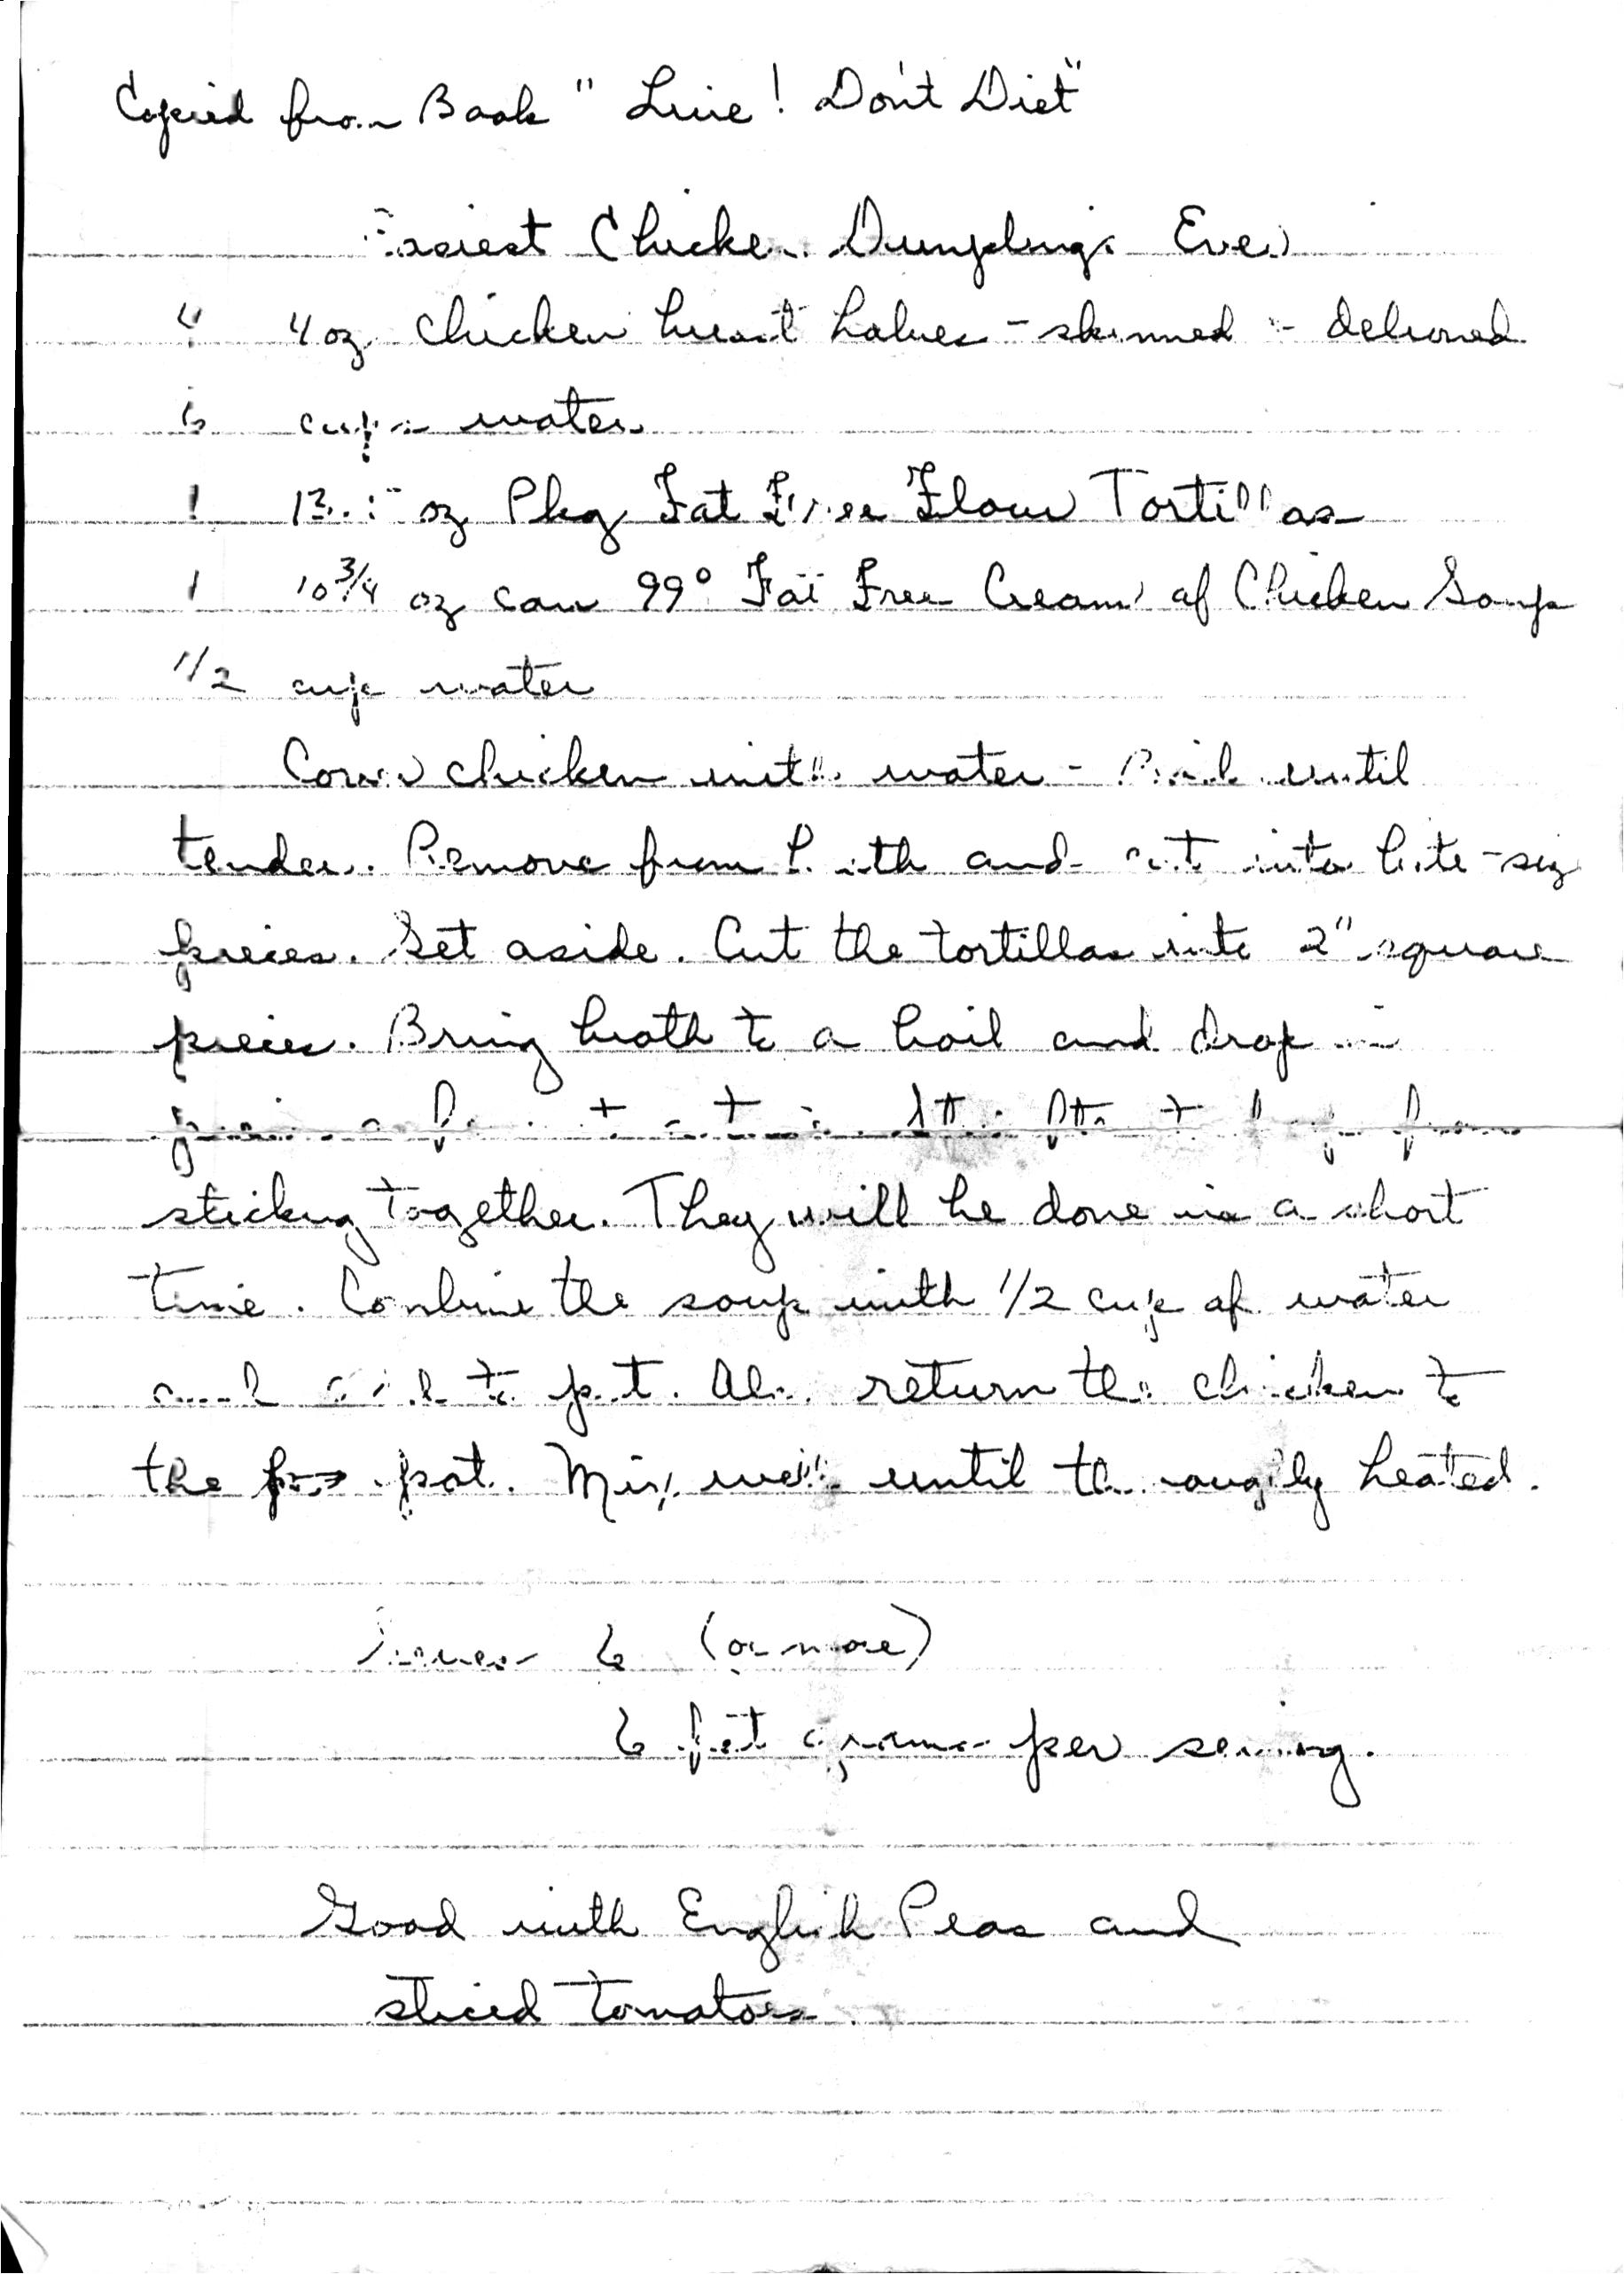 Copied from Book "Live! Don't Diet"
Easiest Chicken Dumplings Ever
4 4 oz chicken breast halves - skinned - deboned
6 cups water
1 oz Pkg Fat Free Flour Tortillas
1 10 3/4 oz can 99% Fat Free Cream of Chicken Soup
1/2 cup water
Cover chicken with water - Cook until
tender. Remove from broth and cut into bite-siz
pieces. Set aside. Cut the tortillas into 2" square
pieces. Bring broth to a boil and drop in
from
sticking together. They will be done in a short
time. Combine the soup with 1/2 cup of water
and add to pot. Also return the chicken to
the pot. Mix well until thoroughly heated.
Serves 6 (or more)
6 fat grams per serving.
Good with English Peas and
sliced tomatoes